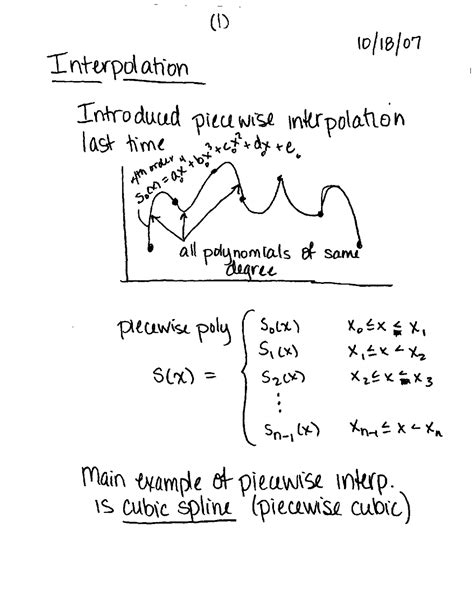 (1)
10/18/07
Interpolation
Introduced piecewise interpolation
last time
4th order
S₀(x) = a₀x⁴ + b₀x³ + c₀x² + d₀x + e₀
all polynomials of same
degree
piecewise poly
S(x) =
S₀(x) x₀ ≤ x ≤ x₁
S₁(x) x₁ ≤ x < x₂
S₂(x) x₂ ≤ x ≤ x₃
⋮
Sₙ₋₁(x) xₙ₋₁ ≤ x < xₙ
Main example of piecewise interp.
is cubic spline (piecewise cubic)